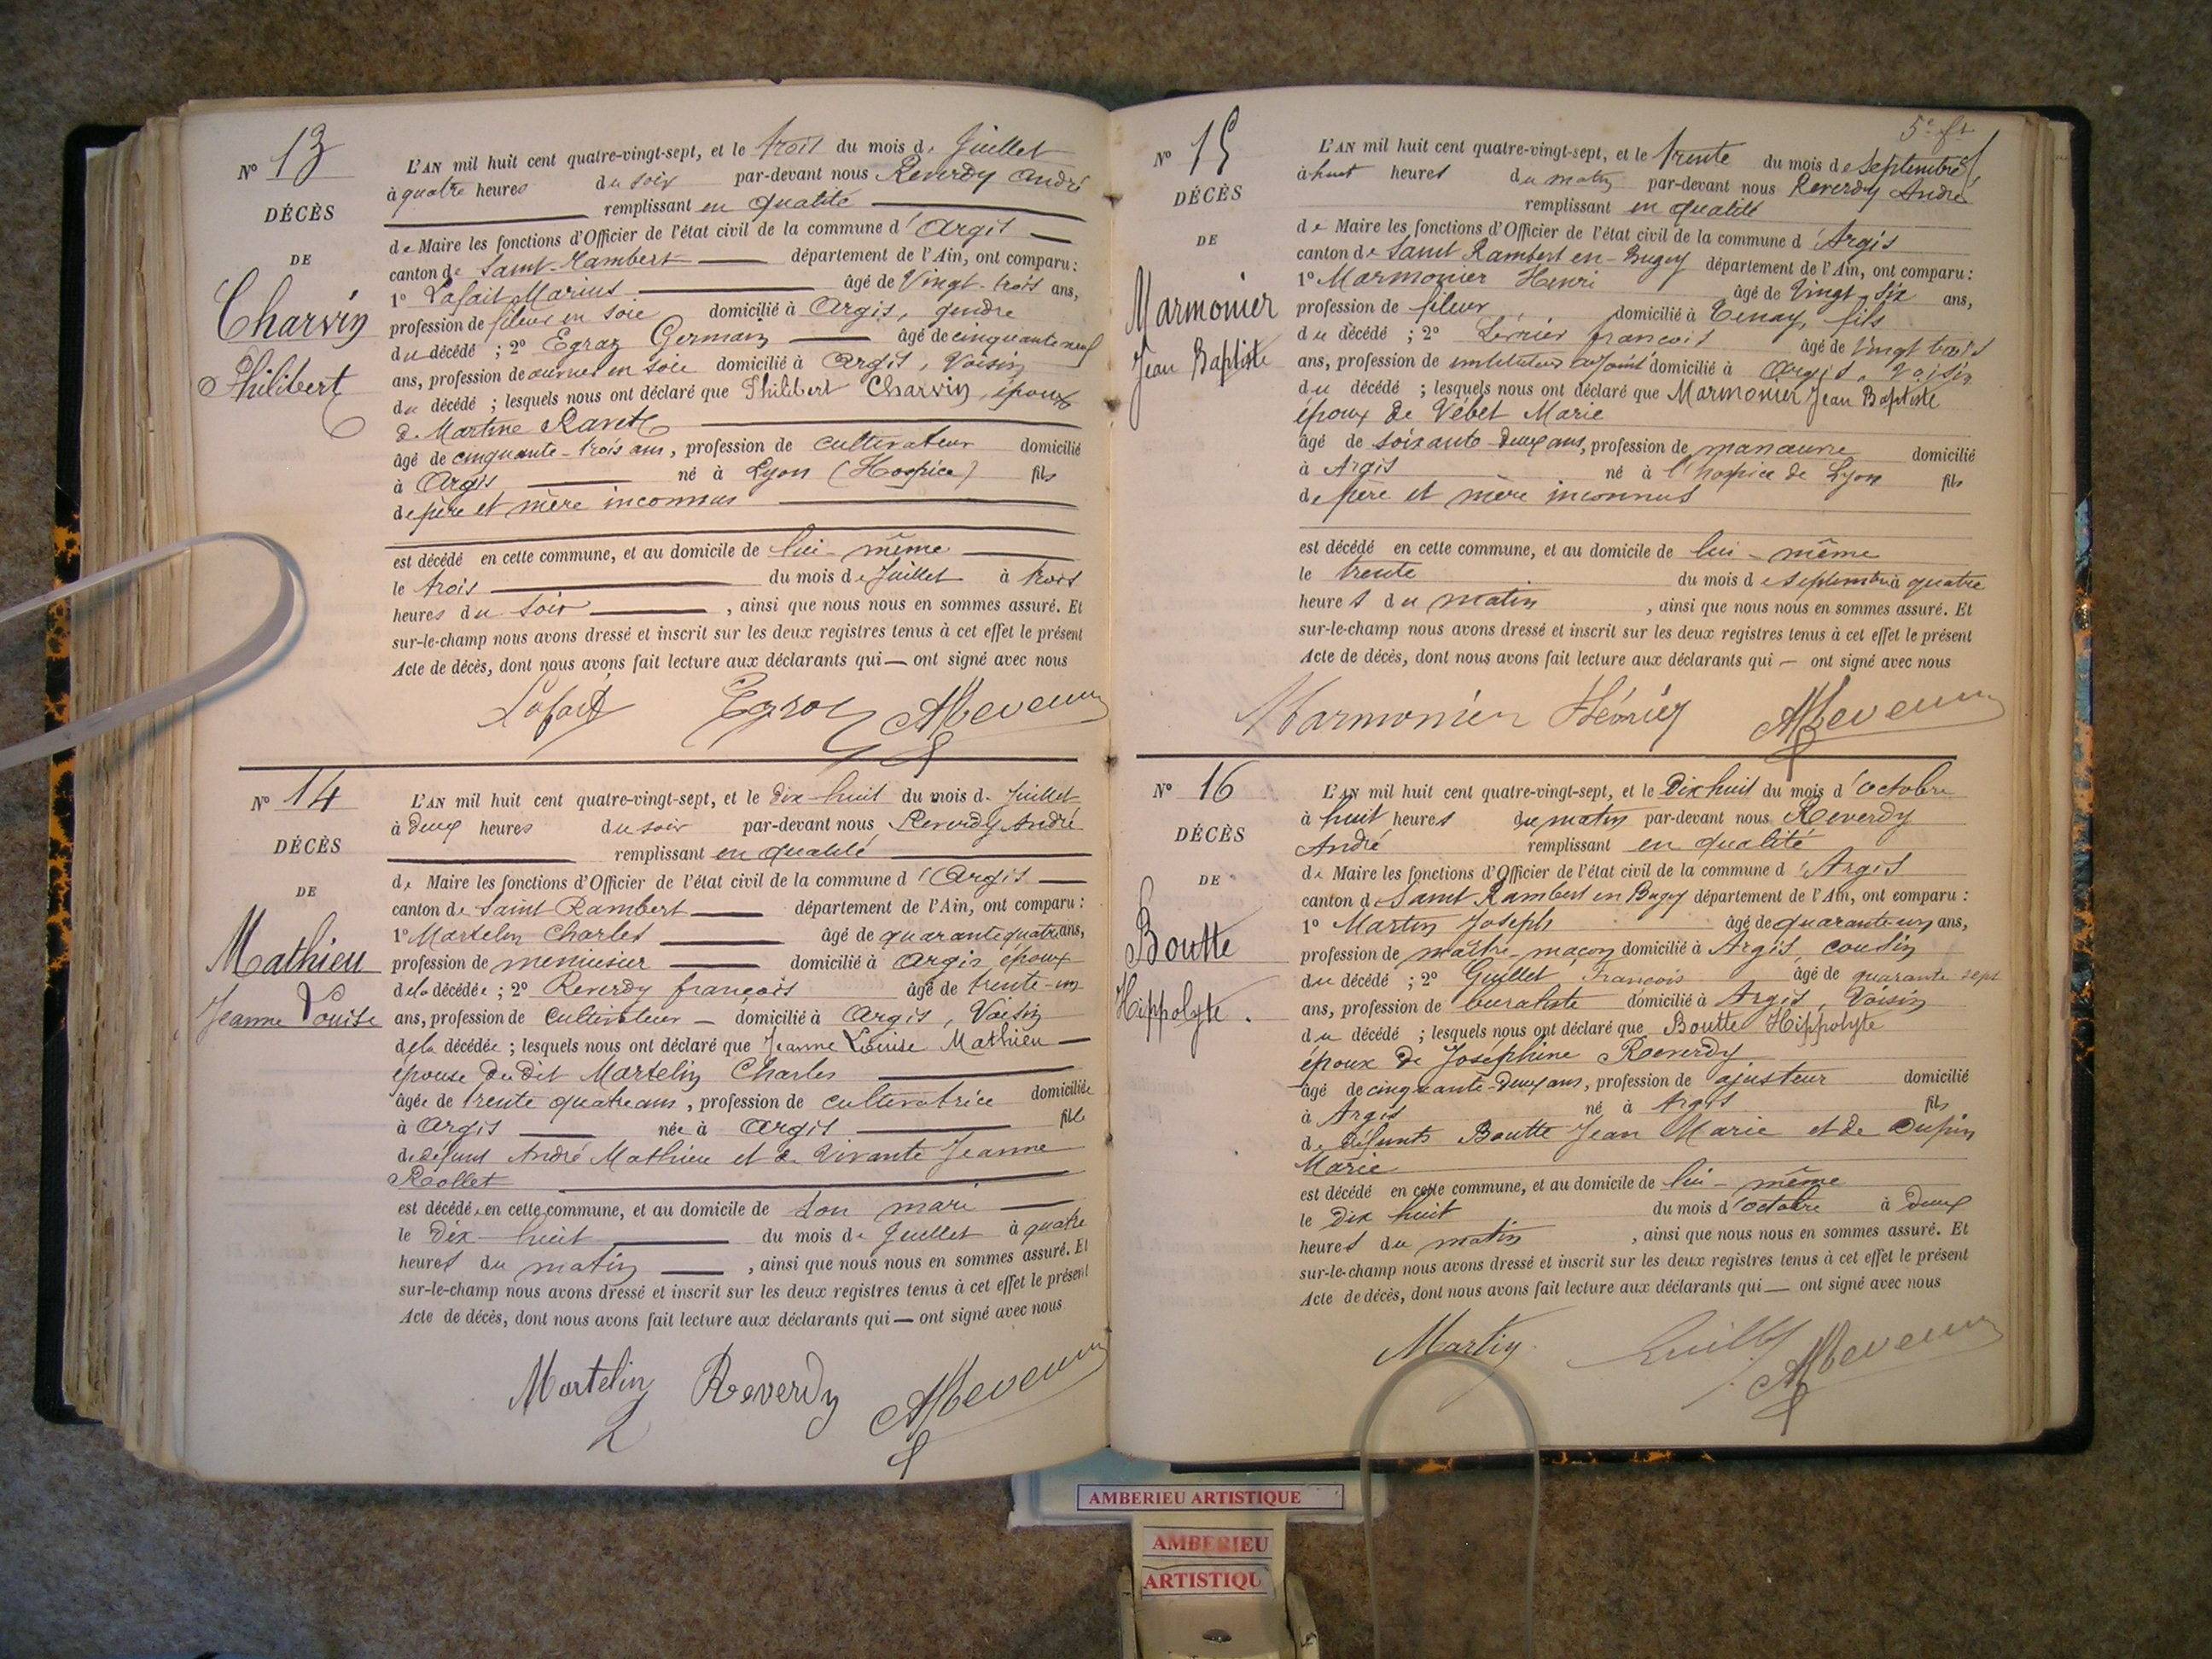 N° 13
DÉCÈS
DE
Charvin
Philibert
L'AN mil huit cent quatre-vingt-sept, et le trois du mois de Juillet
à quatre heures du soir par-devant nous Reverdy André
remplissant en qualité
de Maire les fonctions d'Officier de l'état civil de la commune d'Argis
canton de Saint-Rambert département de l'Ain, ont comparu :
1° Lafait Marius âgé de Vingt-trois ans,
profession de fileur en soie domicilié à Argis, gendre
du décédé ; 2° Egraz Germain âgé de cinquante neuf
ans, profession de ouvrier en soie domicilié à Argis, Voisin
du décédé ; lesquels nous ont déclaré que Philibert Charvin, époux
de Martine Ravet
âgé de cinquante-trois ans, profession de cultivateur domicilié
à Argis né à Lyon (Hospice) fils
de père et mère inconnus
est décédé en cette commune, et au domicile de lui-même
le trois du mois de Juillet à trois
heures du soir, ainsi que nous nous en sommes assuré. Et
sur-le-champ nous avons dressé et inscrit sur les deux registres tenus à cet effet le présent
Acte de décès, dont nous avons fait lecture aux déclarants qui — ont signé avec nous
Lafait Egraz
N° 14
DÉCÈS
DE
Mathieu
Jeanne Louise
L'AN mil huit cent quatre-vingt-sept, et le dix-huit du mois de Juillet
à deux heures du soir par-devant nous Reverdy André
remplissant en qualité
de Maire les fonctions d'Officier de l'état civil de la commune d'Argis
canton de Saint Rambert département de l'Ain, ont comparu :
1° Martelin Charles âgé de quarante quatre ans,
profession de menuisier domicilié à Argis époux
de la décédée ; 2° Reverdy françois âgé de trente-un
ans, profession de Cultivateur domicilié à Argis, Voisin
de la décédée ; lesquels nous ont déclaré que Jeanne Louise Mathieu
épouse dudit Martelin Charles
âgée de trente quatre ans, profession de cultivatrice domiciliée
à Argis née à Argis fille
de défunt André Mathieu et de Vivante Jeanne
Rollet
est décédée en cette commune, et au domicile de son mari
le Dix-huit du mois de Juillet à quatre
heures du matin, ainsi que nous nous en sommes assuré. Et
sur-le-champ nous avons dressé et inscrit sur les deux registres tenus à cet effet le présent
Acte de décès, dont nous avons fait lecture aux déclarants qui — ont signé avec nous
Martelin Reverdy
N° 15
DÉCÈS
DE
Marmonier
Jean Baptiste
L'AN mil huit cent quatre-vingt-sept, et le trente du mois de Septembre
à huit heures du matin par-devant nous Reverdy André
remplissant en qualité
de Maire les fonctions d'Officier de l'état civil de la commune d'Argis
canton de Saint Rambert en-Bugey département de l'Ain, ont comparu :
1° Marmonier Henri âgé de Vingt-six ans,
profession de fileur domicilié à Tenay, fils
du décédé ; 2° françois âgé de Vingt trois
ans, profession de instituteur adjoint domicilié à Argis, Voisin
du décédé ; lesquels nous ont déclaré que Marmonier Jean Baptiste
époux de Vébet Marie
âgé de soixante-deux ans, profession de manœuvre domicilié
à Argis né à l'hospice de Lyon fils
de père et mère inconnus
est décédé en cette commune, et au domicile de lui-même
le trente du mois de Septembre à quatre
heures du matin, ainsi que nous nous en sommes assuré. Et
sur-le-champ nous avons dressé et inscrit sur les deux registres tenus à cet effet le présent
Acte de décès, dont nous avons fait lecture aux déclarants qui — ont signé avec nous
Marmonier
N° 16
DÉCÈS
DE
Boutte
Hippolyte.
L'AN mil huit cent quatre-vingt-sept, et le Dix huit du mois d'octobre
à huit heures du matin par-devant nous Reverdy
André remplissant en qualité
de Maire les fonctions d'Officier de l'état civil de la commune d'Argis
canton d Saint Rambert en Bugey département de l'Ain, ont comparu :
1° Martin Joseph âgé de quarante un ans,
profession de maître maçon domicilié à Argis, cousin
du décédé ; 2° Guillet François âgé de quarante sept
ans, profession de buraliste domicilié à Argis, Voisin
du décédé ; lesquels nous ont déclaré que Boutte Hippolyte
époux de Joséphine Reverdy
âgé de cinquante-deux ans, profession de ajusteur domicilié
à Argis né à Argis fils
de défunts Boutte Jean Marie et de Dupin
Marie
est décédé en cette commune, et au domicile de lui-même
le Dix huit du mois d'octobre à Deux
heures du matin, ainsi que nous nous en sommes assuré. Et
sur-le-champ nous avons dressé et inscrit sur les deux registres tenus à cet effet le présent
Acte de décès, dont nous avons fait lecture aux déclarants qui — ont signé avec nous
Martin
AMBERIEU ARTISTIQUE
AMBERIEU
ARTISTIQU